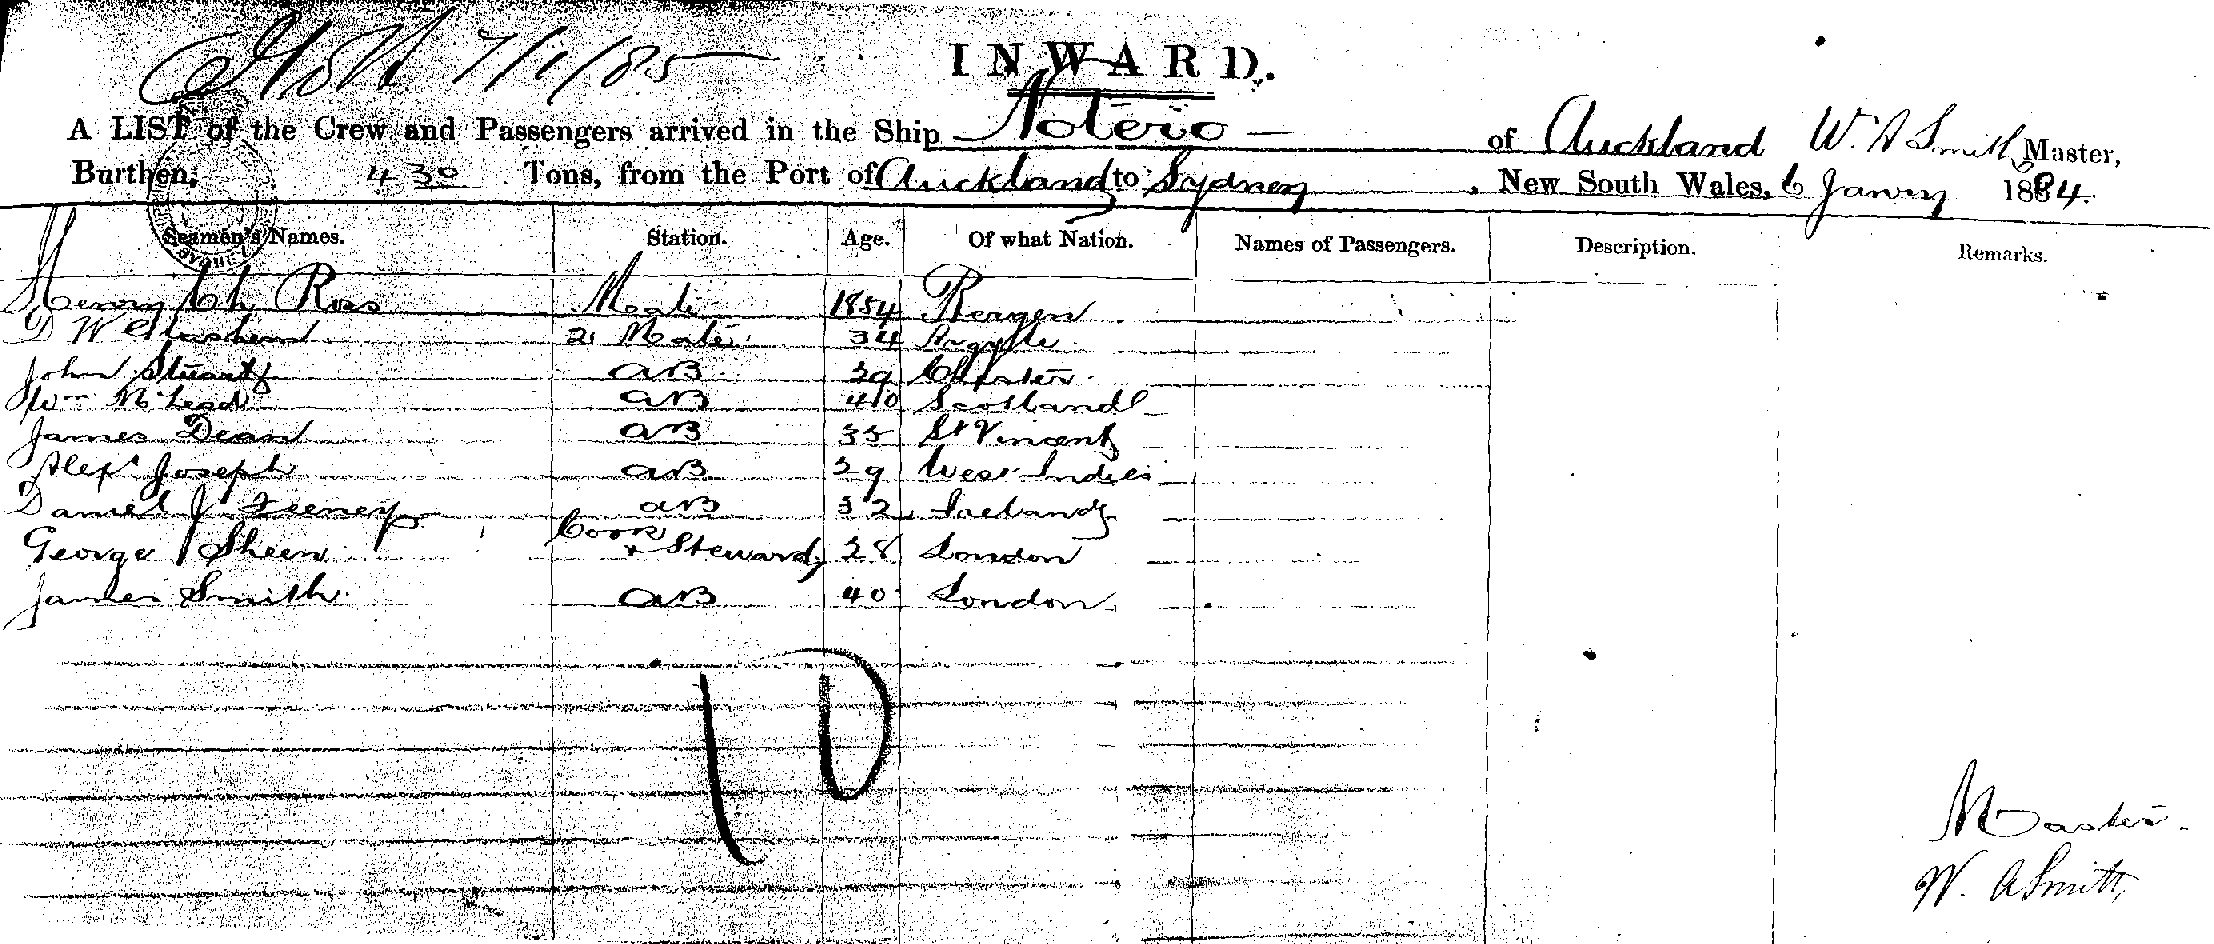 7/1/85
INWARD.
A LIST of the Crew and Passengers arrived in the Ship Notero of Auckland W. A Smith Master,
Burthen, 430 Tons, from the Port of Auckland to Sydney, New South Wales, 6 Janury 1884.
Seamen's Names. Station. Age. Of what Nation. Names of Passengers. Description. Remarks.
Henry Ross Mate 1854 Bergen
D W 2 Mate 34 Argylle
John Stuart AB 29 Chester
Wm McLeod AB 40 Scotland
James Dean AB 35 St Vincent
Alexr Joseph AB 29 West Indies
Daniel J Feeney AB 32 Ireland
George Sheen Cook + Steward 28 London
James Smith AB 40 London
10
Master
W. A Smith